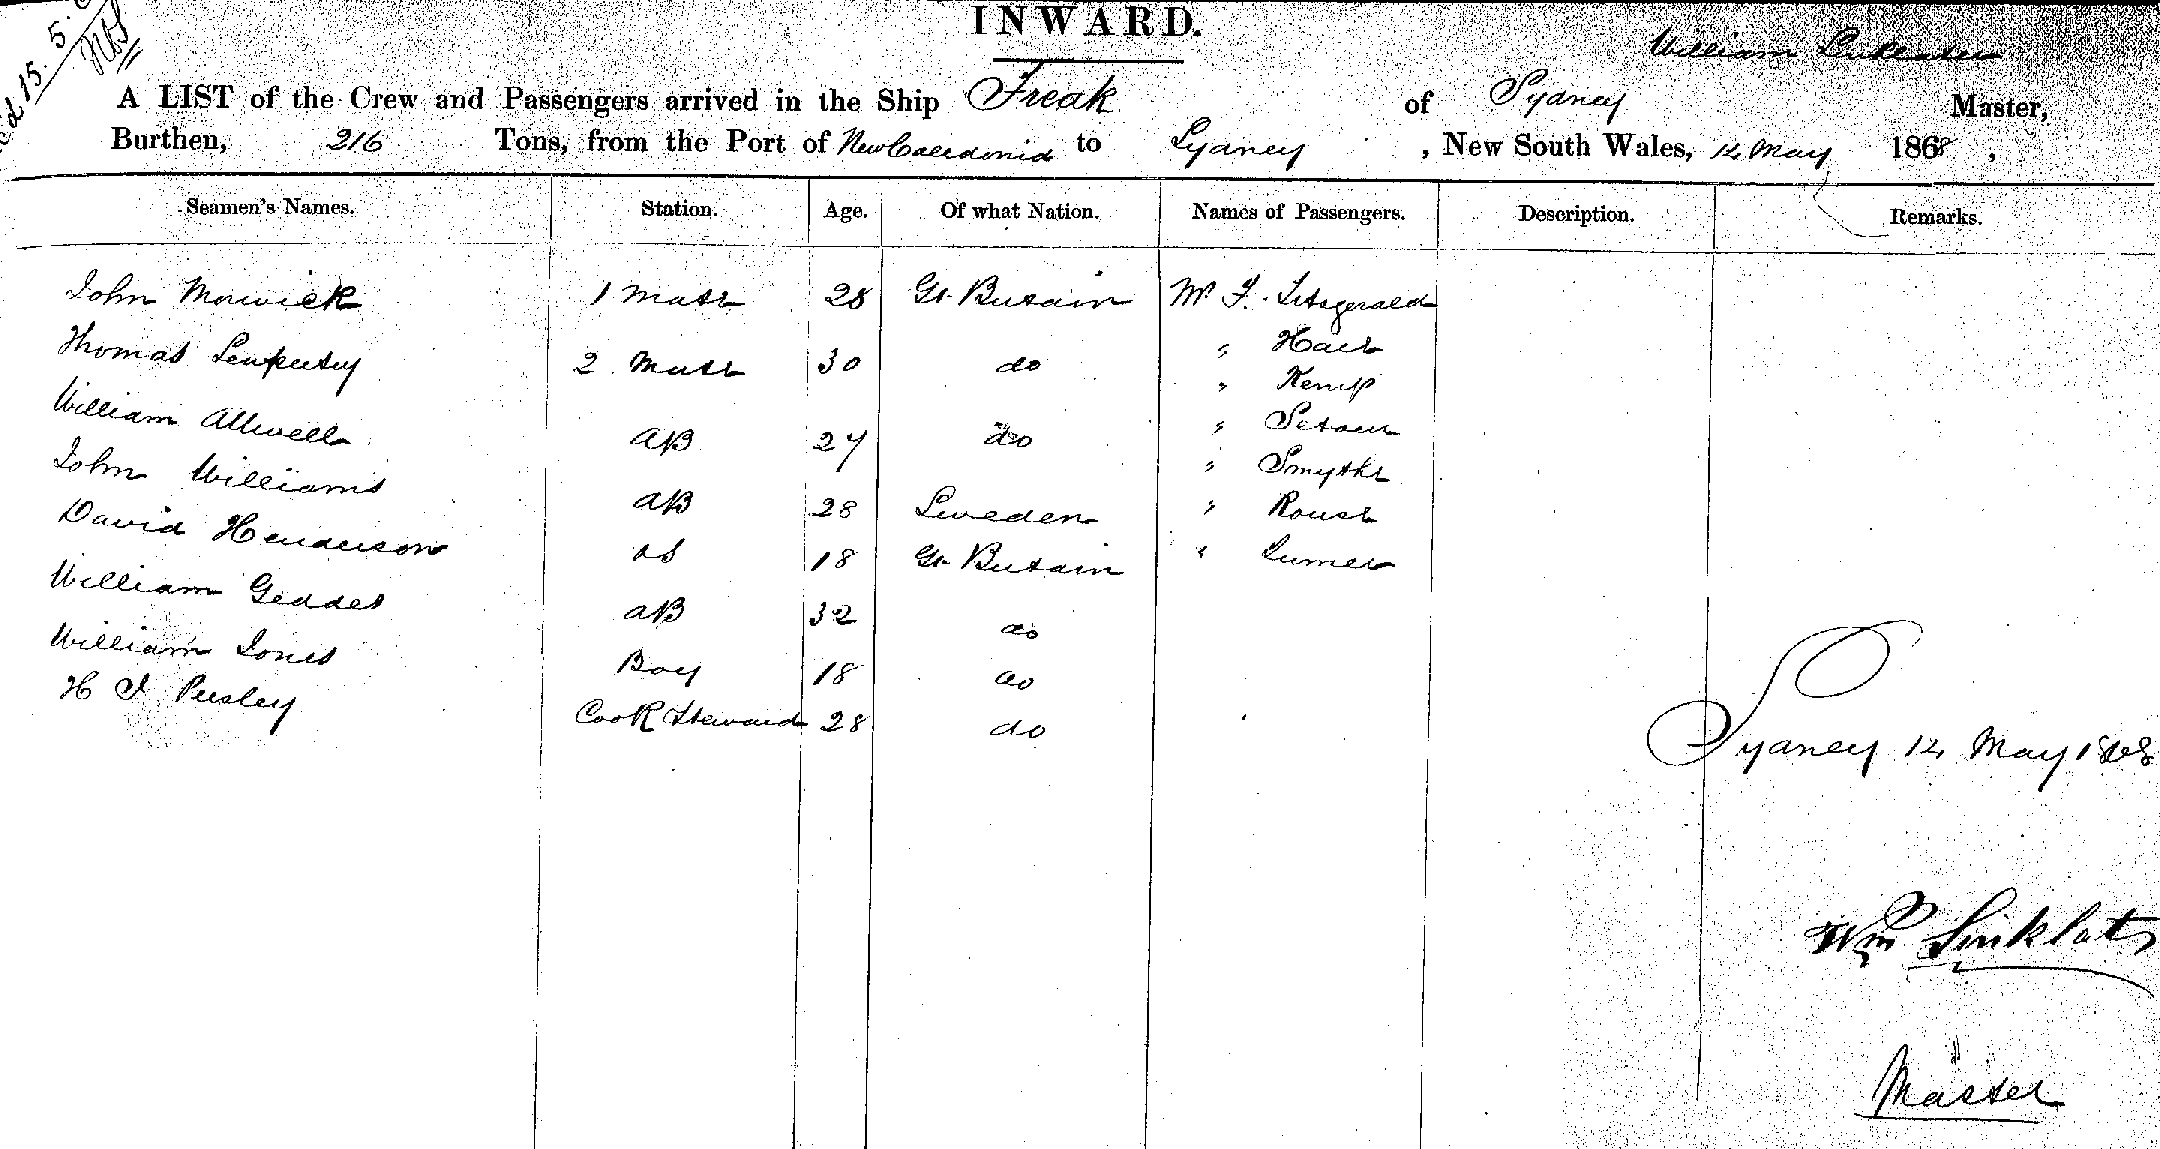 INWARD.
A LIST of the Crew and Passengers arrived in the Ship Freak of Sydney William Master,
Burthen, 216 Tons, from the Port of New Caledonia to Sydney, New South Wales, 12 May 1868,
Seamen's Names. Station. Age. Of what Nation. Names of Passengers. Description. Remarks.
John Morwick 1 Mate 28 Gt. Britain Mr F. Fitzgerald
Thomas 2 Mate 30 do
" Kemp
William Allwell AB 27 do
John Williams AB 28 Sweden " Smythe
David Henderson OS 18 Gt. Britain
William Geddes AB 32 do
William Jones Boy 18 do
H Cook Steward 28 do
Sydney 12 May 1868
Wm
Master